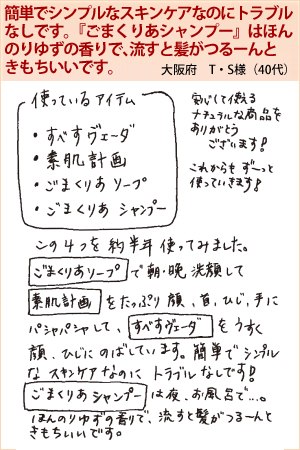 簡単でシンプルなスキンケアなのにトラブル
なしです。『ごまくりあシャンプー』はほん
のりゆずの香りで、流すと髪がつるーんと
きもちいいです。
大阪府 T・S様（40代）
使っているアイテム
・すべすヴェーダ
・素肌計画
・ごまくりあ ソープ
・ごまくりあ シャンプー
安心して使える
ナチュラルな商品を
ありがとう
ございます!
これからも ず〜っと
使っていきます!
この4つを約半年使ってみました。
ごまくりあソープ で朝・晩 洗顔して
素肌計画 をたっぷり 顔、首、ひじ、手に
パシャパシャして、すべすヴェーダ をうすく
顔、ひじにのばしています。簡単でシンプル
なスキンケアなのに トラブルなしです!
ごまくりあシャンプー は夜、お風呂で…。
ほんのりゆずの香りで、流すと髪がつるーんと
きもちいいです。